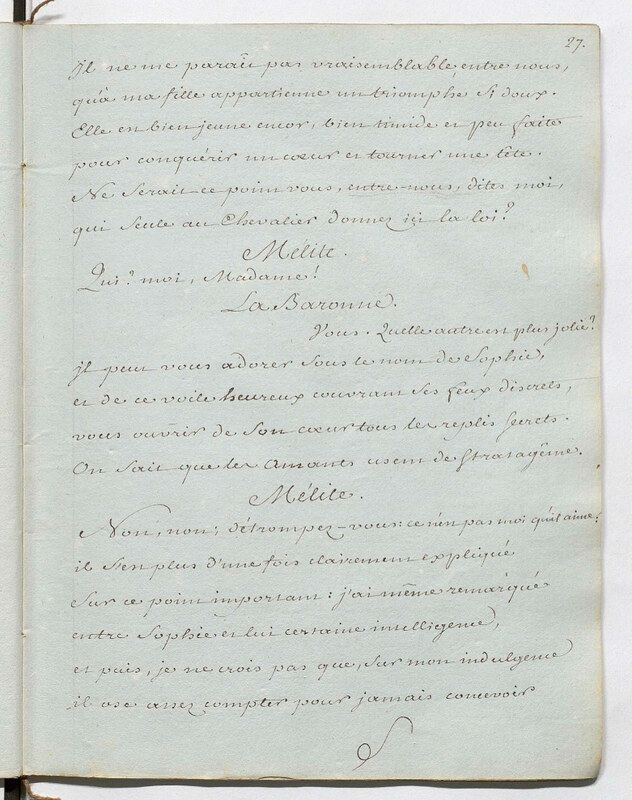 27.
Il ne me paraît pas vraisemblable, entre nous,
qu'à ma fille appartienne un triomphe si doux.
Elle est bien jeune encor, bien timide et peu faite
pour conquérir un cœur et tourner une tête.
Ne serait-ce point vous, entre-nous, dites moi,
qui seule au Chevalier donnez ici la loi?
Mélite.
Qui? moi, Madame!
La Baronne.
Vous. Quelle autre est plus jolie?
il peut vous adorer sous le nom de Sophie,
et de ce voile heureux couvrant ses feux discrets,
vous ouvrir de son cœur tous les replis secrets.
On sait que les Amants usent de stratagême.
Mélite.
Non, non; détrompez-vous: ce n'est pas moi qu'il aime;
il s'est plus d'une fois clairement expliqué
sur ce point important: j'ai même remarqué
entre Sophie et lui certaine intelligence,
et puis, je ne crois pas que, sur mon indulgence
il ose assez compter pour jamais concevoir